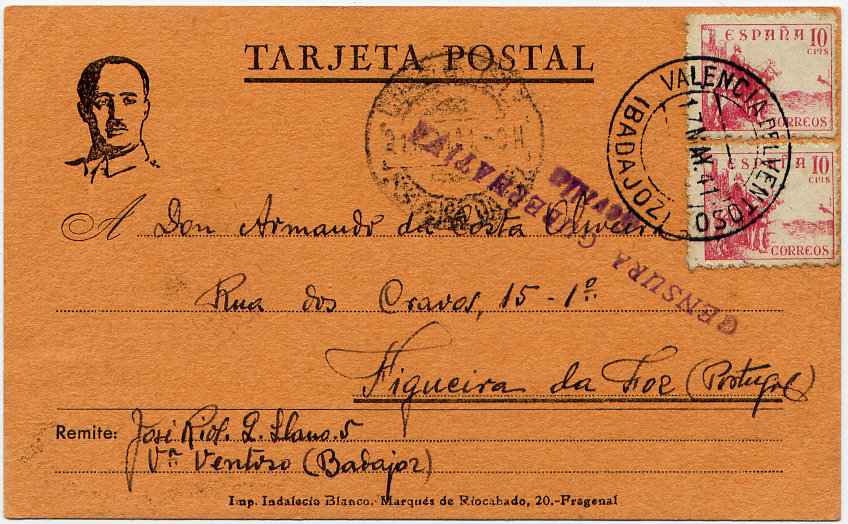 TARJETA POSTAL
ESPAÑA 10 CTS
CORREOS
ESPAÑA 10 CTS
CORREOS
VALENCIA DEL VENTOSO
17 MAY. 41
(BADAJOZ)
CENSURA GUBERNATIVA
Sevilla
A Don Armando da Costa Oliveira
Rua dos Cravos, 15 - 1º
Figueira da Foz (Portugal)
Remite: José Q. Llano. 5
Vª Ventoso (Badajoz)
Imp. Indalecio Blanco.- Marqués de Riocabado, 20.-Fregenal